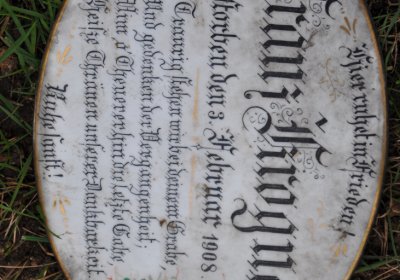 Hier ruht in Frieden
Franz
storben den 3. Februar 1908
Traurig stehen wir bei deinem Grabe,
Und gedenken der Vergangenheit,
Nim o Theurer hin die letzte Gabe,
Heiße Thränen unserer Dankbarkeit.
Ruhe sanft!